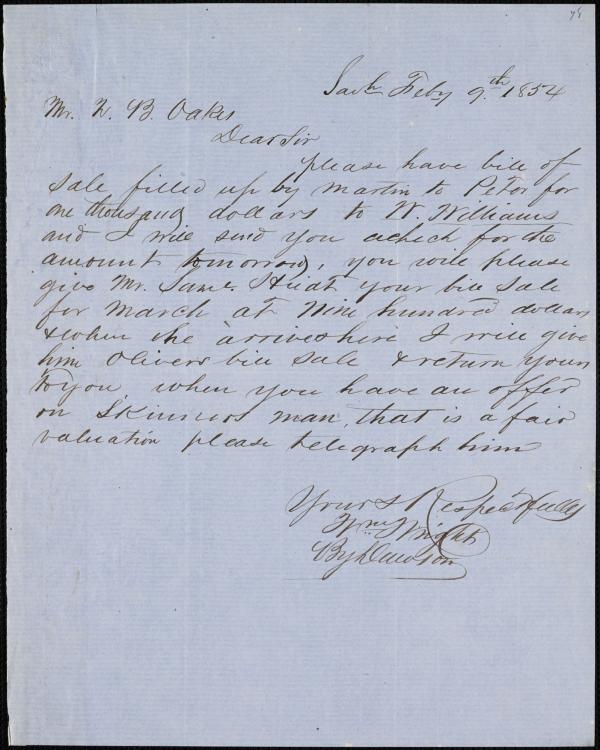 Savh Feby 9th 1854
Mr. Z. B. Oakes
Dear Sir
please have bill of
Sale filled up by Martin to Peter for
one thousand dollars to W. Williams
and I will send you acheck for the
amount tomorrow, you will please
give Mr. Saml. your bill Sale
for March at Nine hundred dollars
& when he arrives here I will give
him Olivers bill Sale & return yours
to you, when you have an offer
on Skinners man, that is a fair
valuation please telegraph him
Yours Respectfully
Wm Wright
By